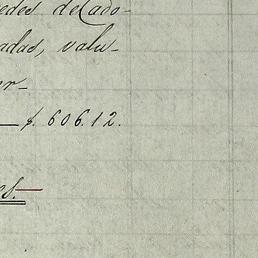 edes del ado-
adas, valu-
or-
— $. 606.12.
es.—